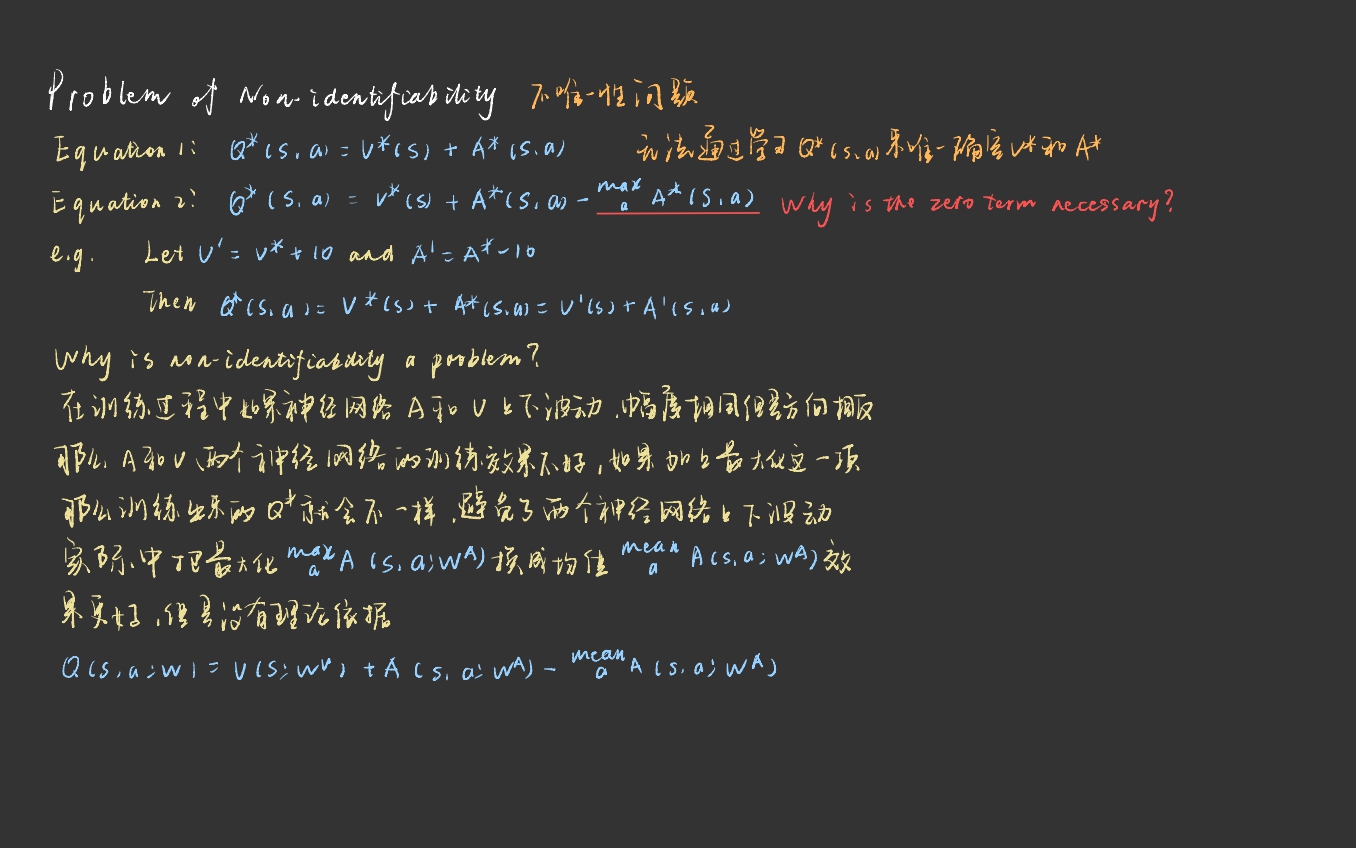 Problem of Non-identifiability 不唯一性问题
Equation 1: Q*(s,a) = V*(s) + A*(s,a) 无法通过学习 Q*(s,a) 来唯一确定 V* 和 A*
Equation 2: Q*(s,a) = V*(s) + A*(s,a) - max_a A*(s,a) Why is the zero term necessary?
e.g. Let V' = V* + 10 and A' = A* - 10
Then Q*(s,a) = V*(s) + A*(s,a) = V'(s) + A'(s,a)
Why is non-identifiability a problem?
在训练过程中如果神经网络 A 和 V 上下波动,幅度相同但是方向相反
那么 A 和 V 两个神经网络的训练效果不好,如果加上最大化这一项
那么训练出来的 Q* 就会不一样,避免了两个神经网络上下波动
实际中把最大化 max_a A(s,a;w^A) 换成均值 mean_a A(s,a;w^A) 效
果更好,但是没有理论依据
Q(s,a;w) = V(s;w^V) + A(s,a;w^A) - mean_a A(s,a;w^A)